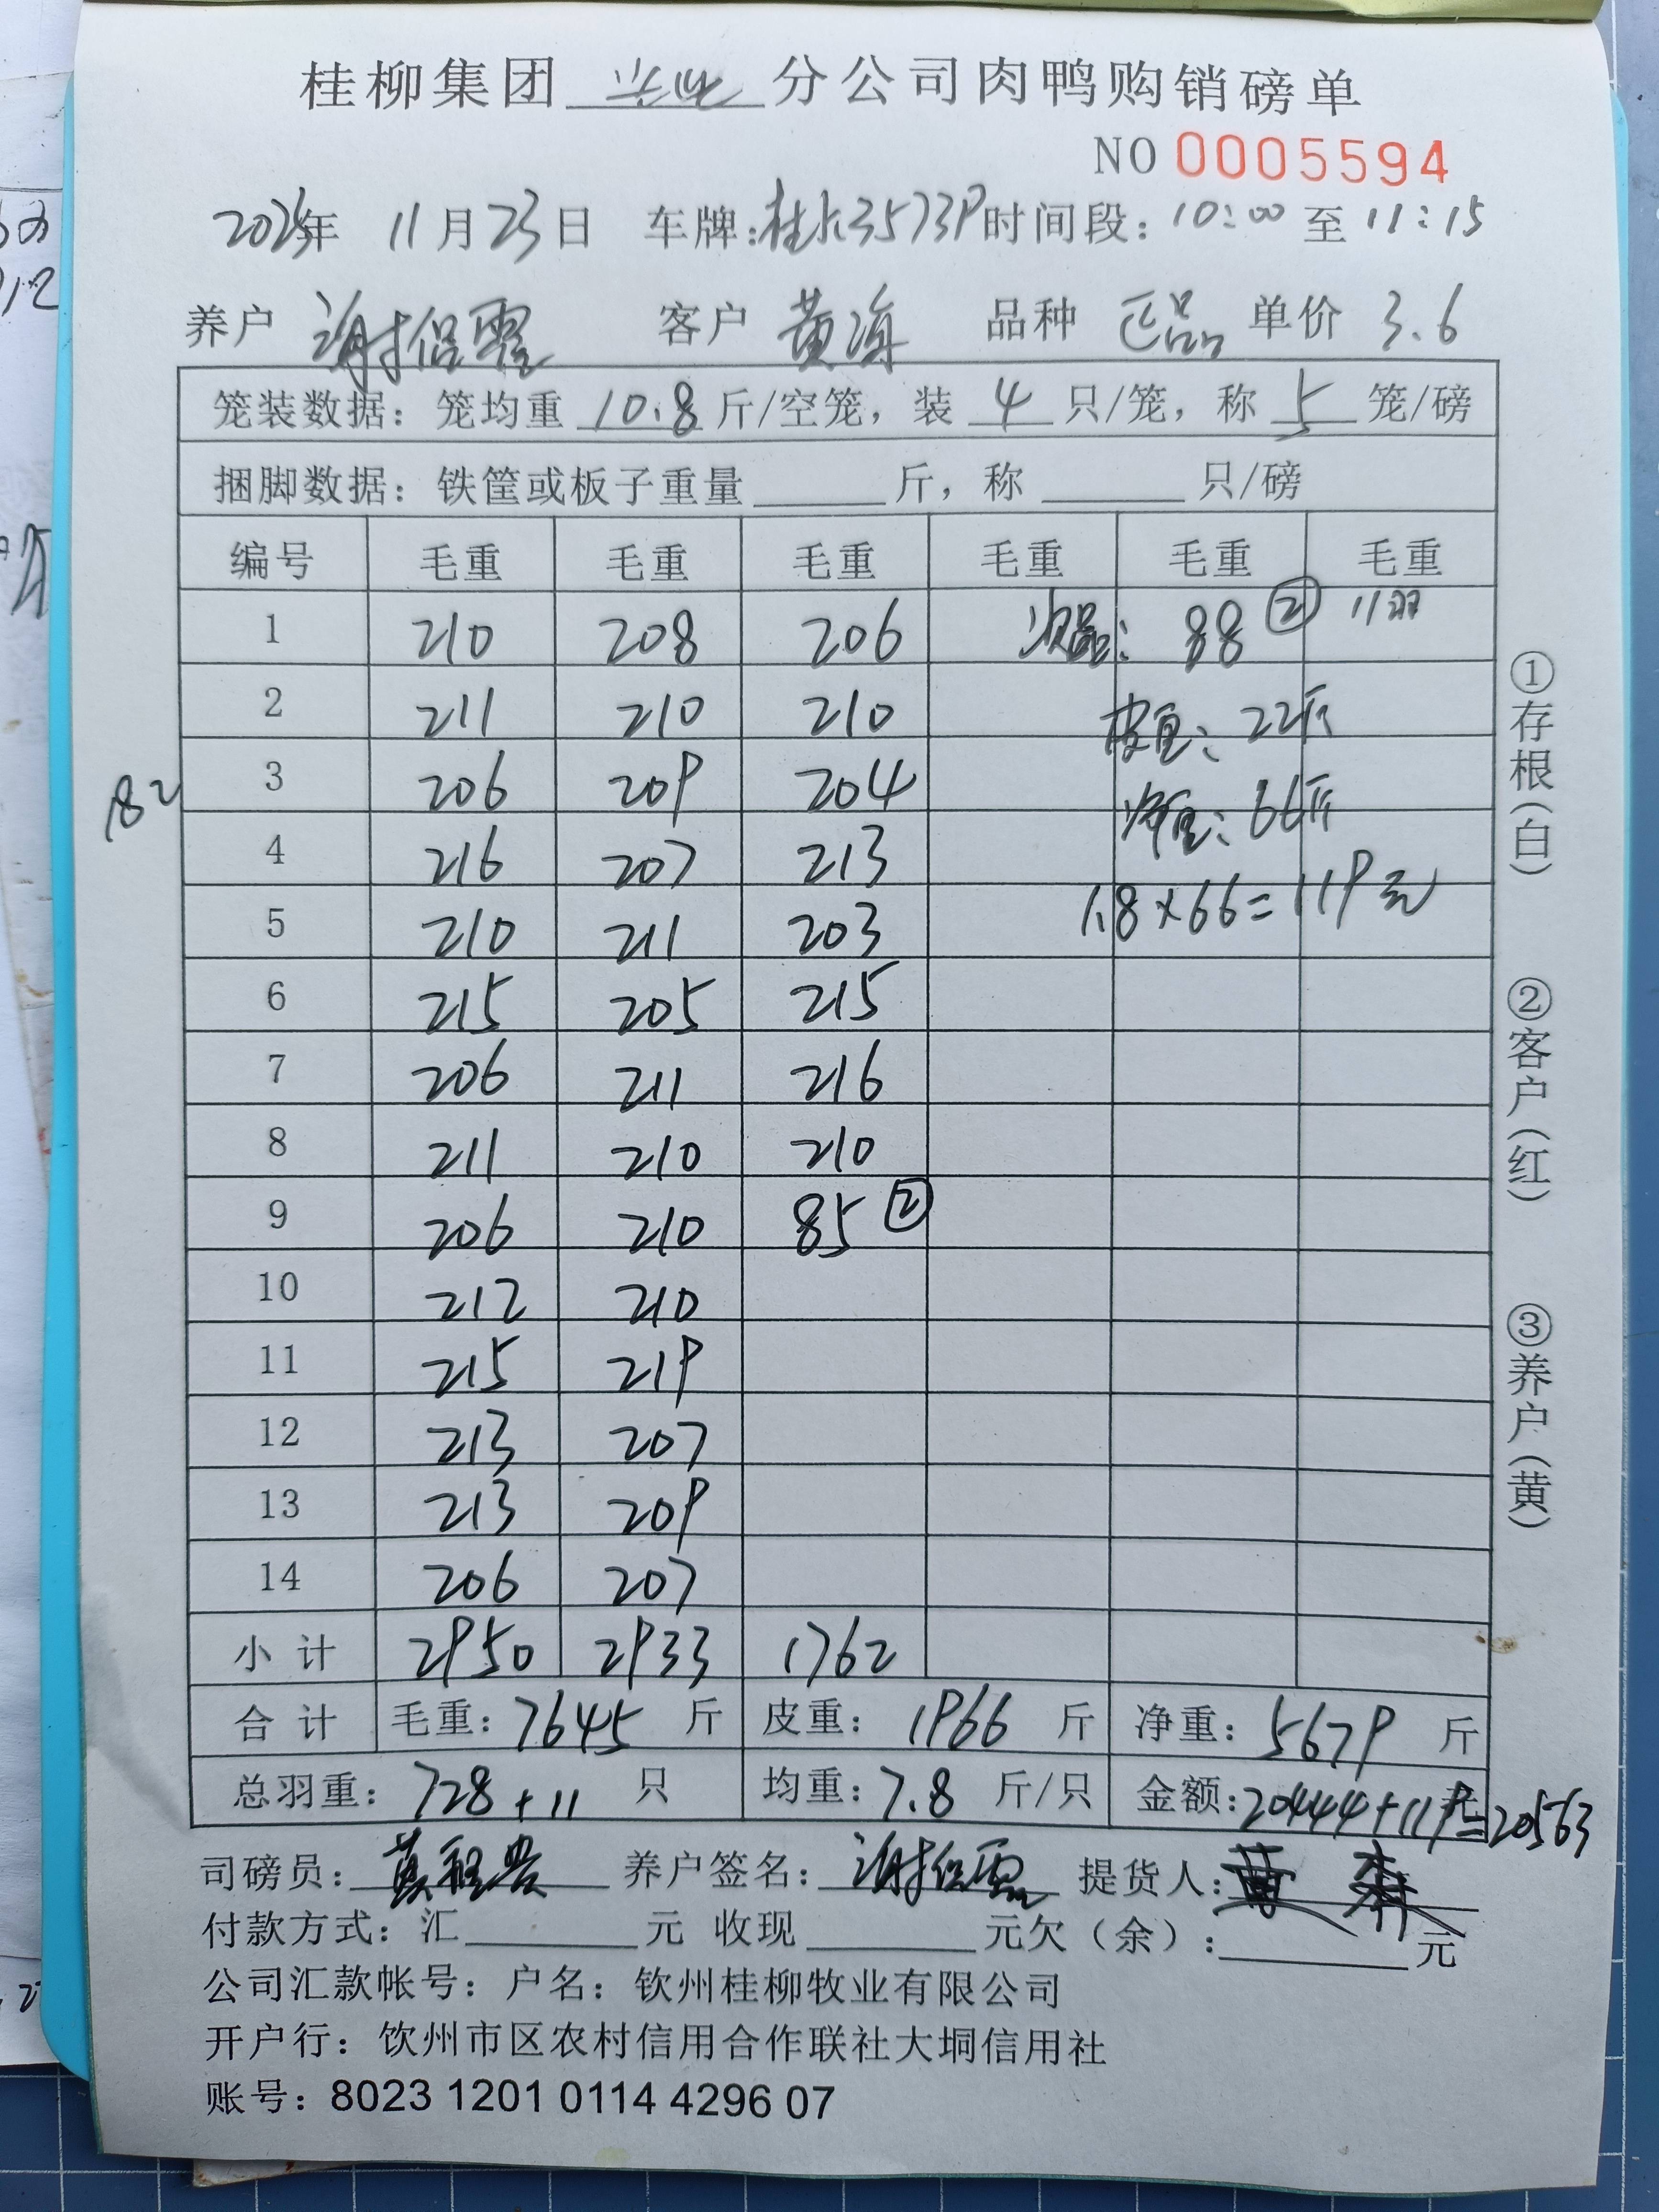 桂柳集团 兴业 分公司肉鸭购销磅单
NO 0005594
2025年 11月23日 车牌:桂K3573P 时间段:10:00 至 11:15
养户 谢保霞 客户 黄海 品种 正品 单价 3.6
笼装数据:笼均重 10.8 斤/空笼,装 4 只/笼,称 5 笼/磅
捆脚数据:铁筐或板子重量 斤,称 只/磅
编号 毛重 毛重 毛重 毛重 毛重 毛重
1 210 208 206 次品: 88 ② 11羽
2 211 210 210 皮重: 22斤
182 3 206 209 204 净重: 66斤
4 216 207 213
5 210 211 203 1.8×66=119元
6 215 205 215
7 206 211 216
8 211 210 210
9 206 210 85 ②
10 212 210
11 215 219
12 213 207
13 213 209
14 206 207
小计 2950 2933 1762
合计 毛重:7645 斤 皮重:1966 斤 净重:5679 斤
总羽重:728+11 只 均重:7.8 斤/只 金额:20444+119=20563
司磅员: 养户签名:谢保霞 提货人:黄
付款方式:汇 元 收现 元欠(余): 元
公司汇款帐号:户名:钦州桂柳牧业有限公司
开户行:饮州市区农村信用合作联社大垌信用社
账号:8023 1201 0114 4296 07
①存根(白) ②客户(红) ③养户(黄)